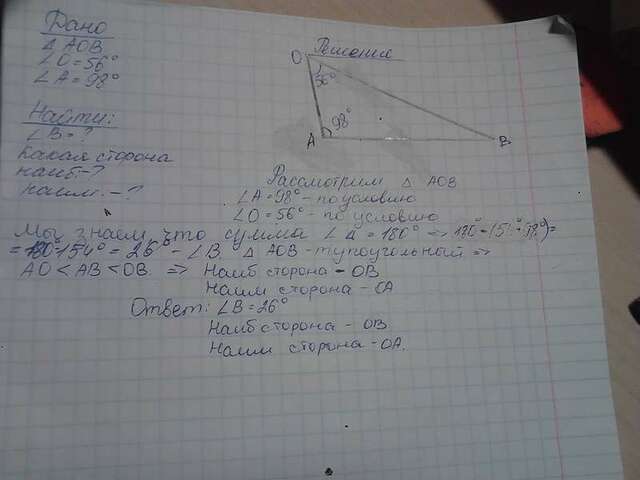 Дано
△ AOB
∠O = 56°
∠A = 98°
Найти:
∠B = ?
Какая сторона
наиб. - ?
наим. - ?
Решение
O
56°
98°
A
B
Рассмотрим △ AOB
∠A = 98° - по условию
∠O = 56° - по условию
Мы знаем, что сумма ∠ △ = 180° => 180° - (56° + 98°) =
= 180° - 154° = 26° - ∠B. △ AOB - тупоугольный =>
AO < AB < OB => Наиб сторона - OB
Наим сторона - OA
Ответ: ∠B = 26°
Наиб сторона - OB
Наим сторона - OA.